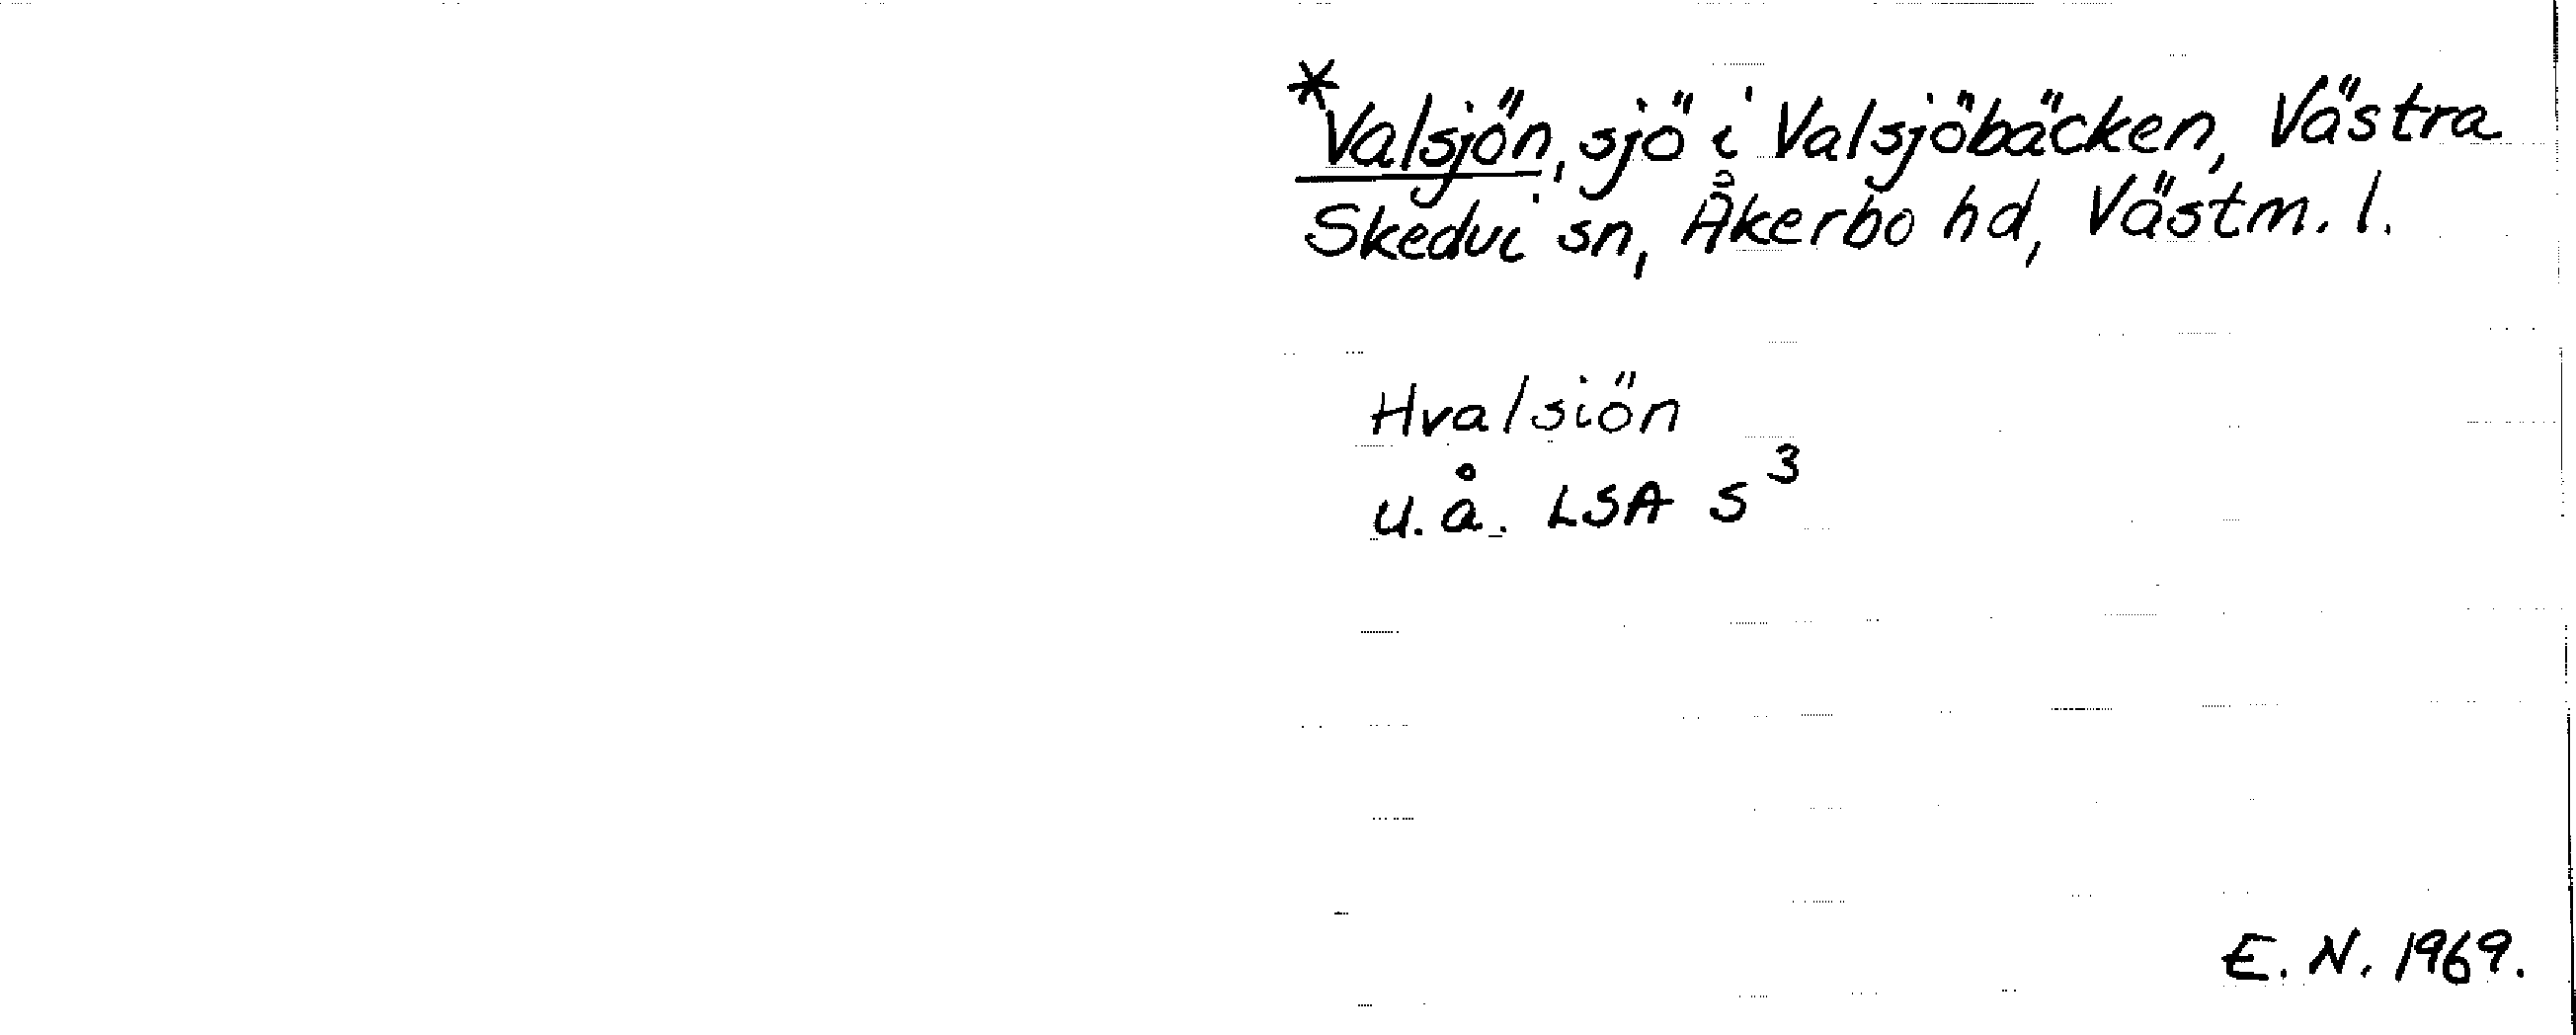 *Valsjön, sjö i Valsjöbäcken, Västra
Skedvi sn, Åkerbo hd, Västm. l.
Hvalsiön
u.å. LSA S³
E. N. 1969.